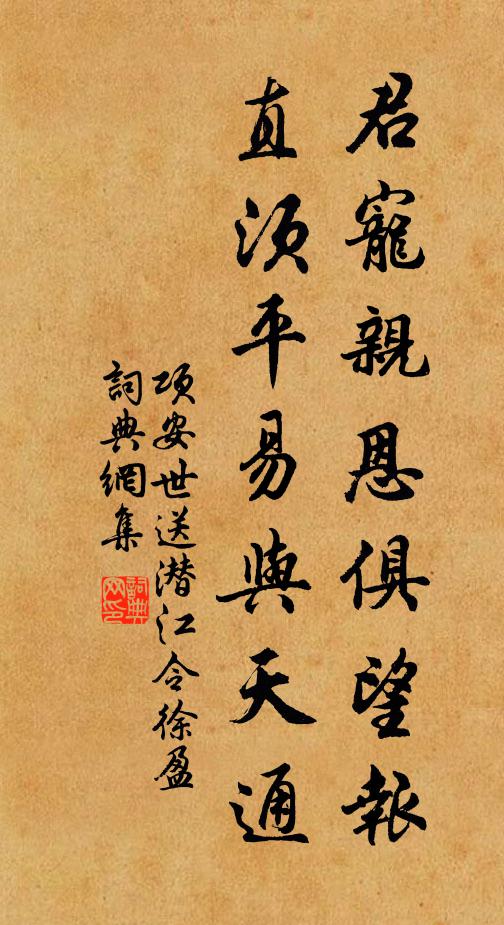 君寵親恩俱望報
直須平易與天通
項安世送潜江令徐盈
詞典網集
詞典網印